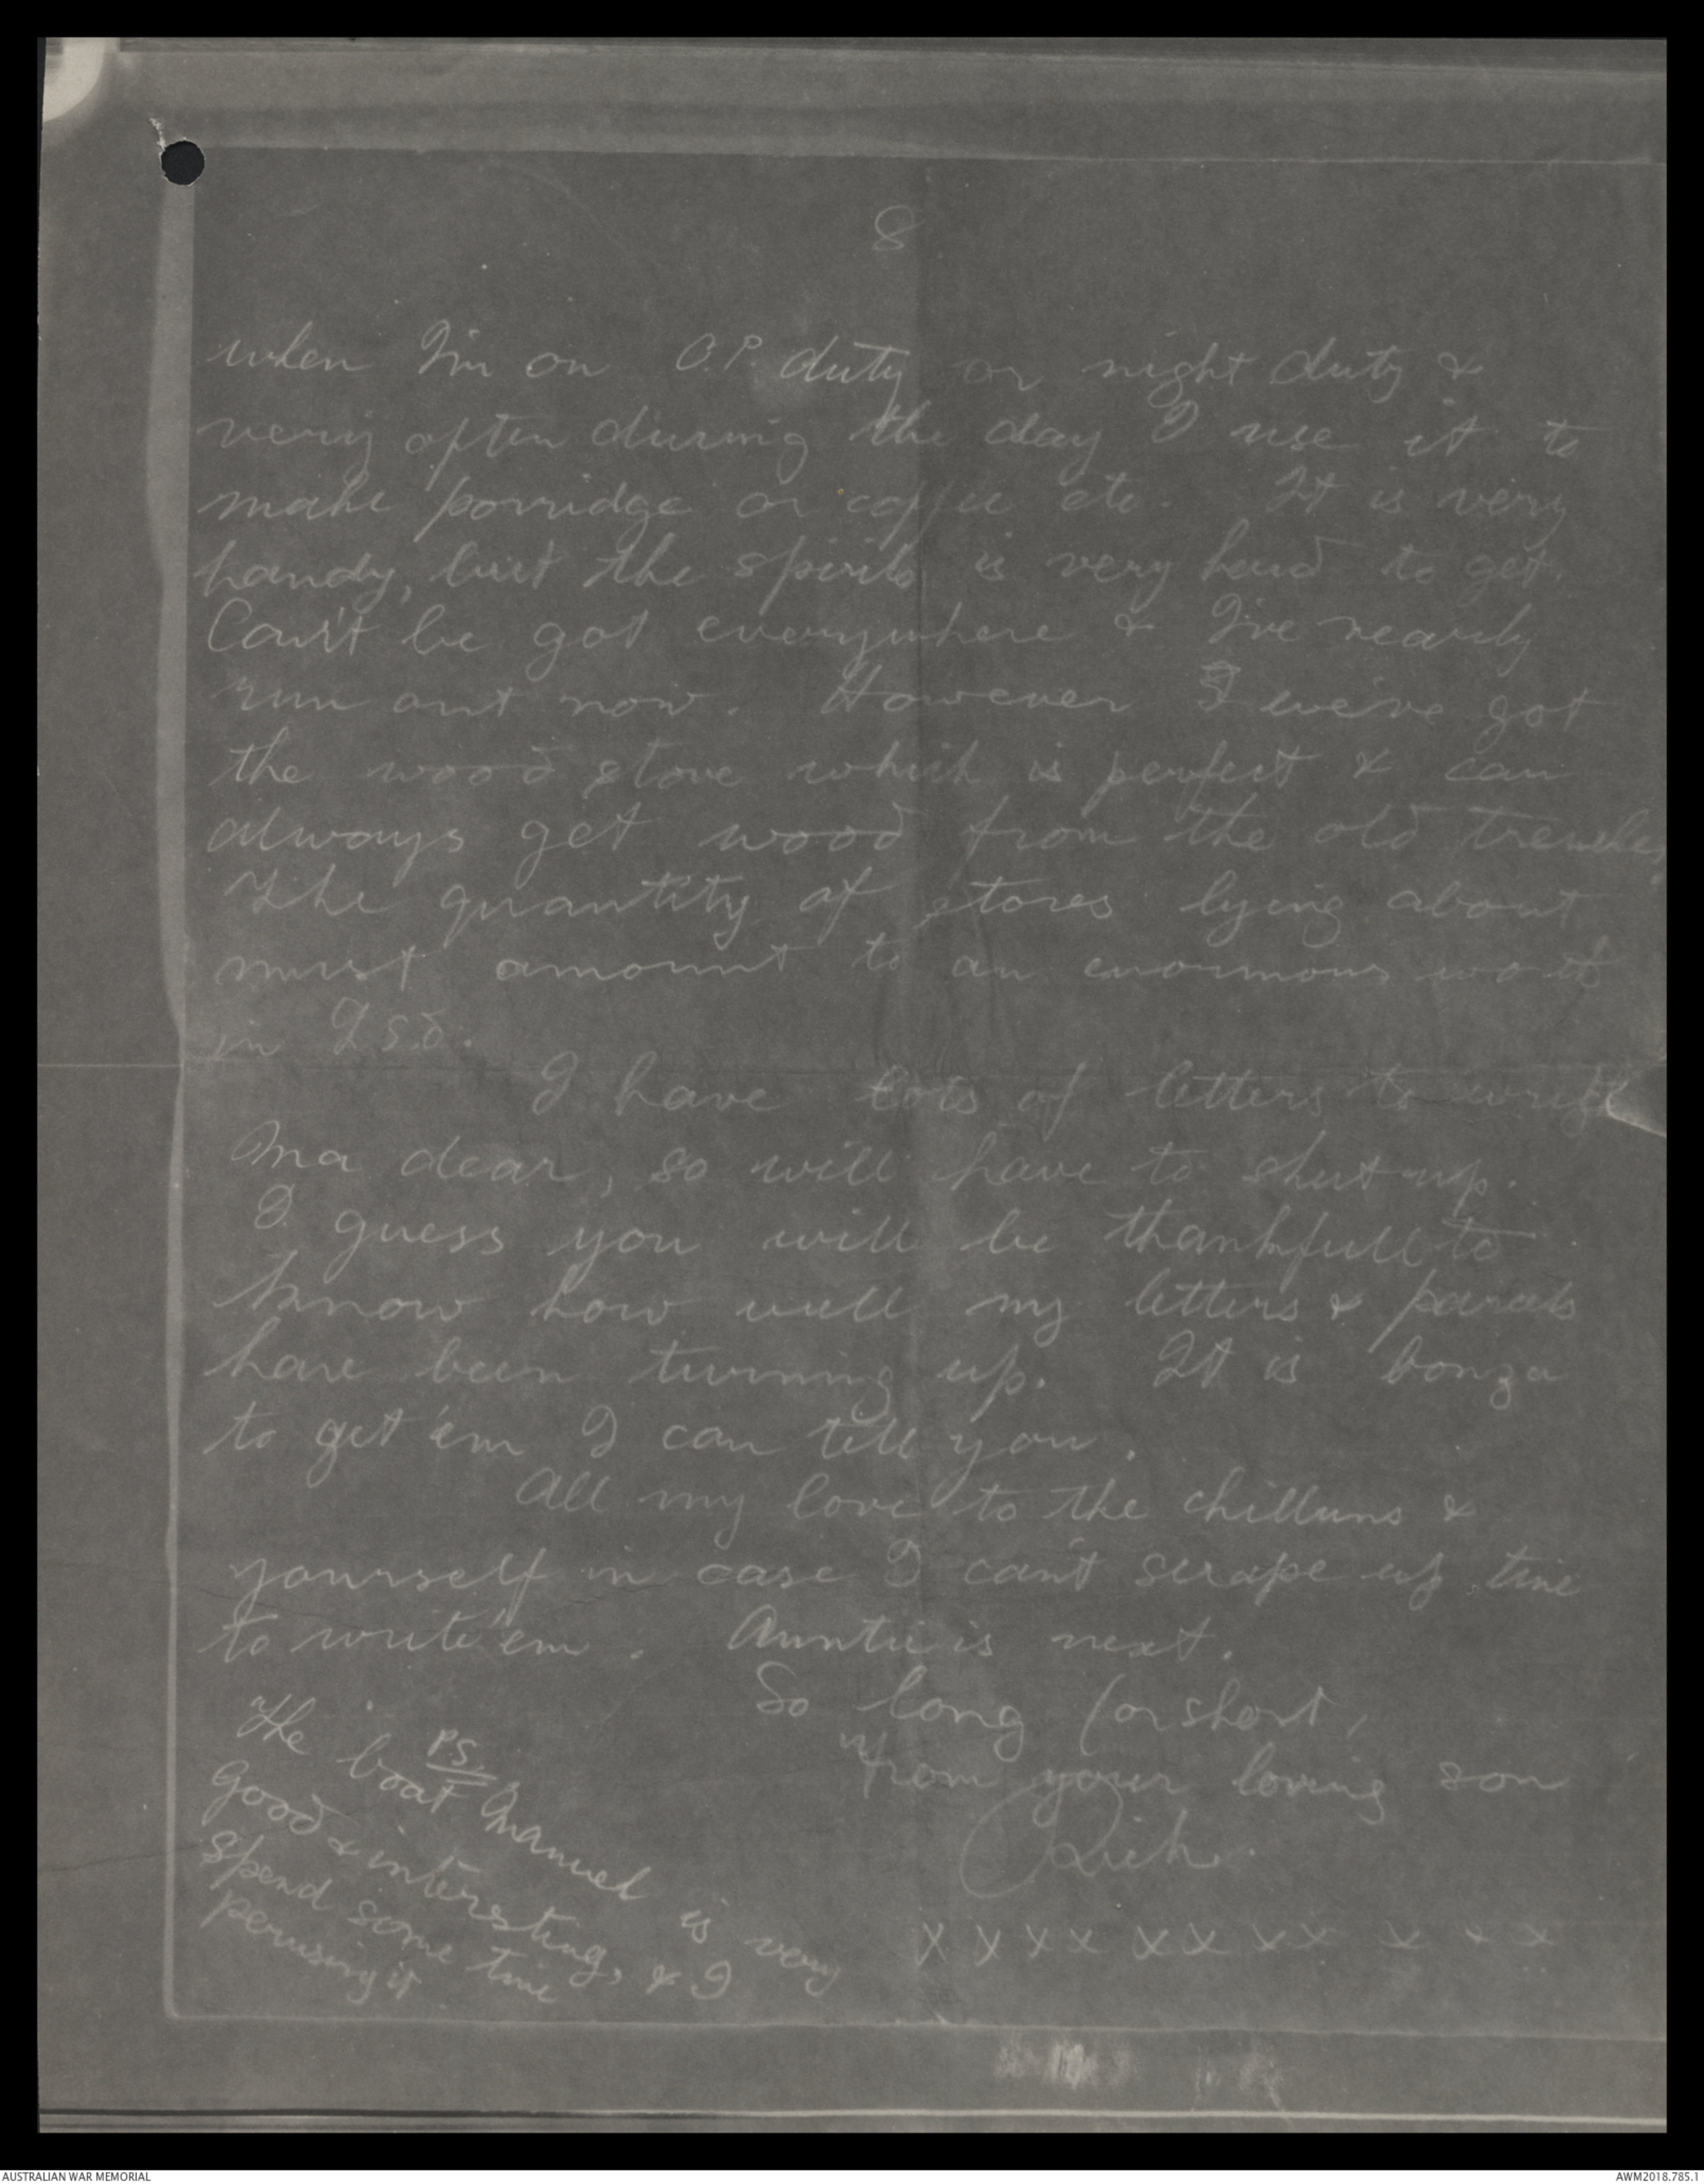 8
when I'm on O.P. duty or night duty &
very often during the day I use it to
make porridge or coffee etc. It is very
handy, but the spirits is very hard to get.
Can't be got everywhere & I've nearly
run out now. However we've got
the wood stove which is perfect & can
always get wood from the old trenches
The quantity of stores lying about
must amount to an enormous
in £.s.d.
I have lots of letters to write
Ma dear, so will have to shut up.
I guess you will be thankfull to
know how well my letters & parcels
have been turning up. It is bonza
to get 'em I can tell you.
All my love to the chilluns &
yourself in case I can't scrape up time
to write 'em. Auntie is next.
So long (or short,
from your loving son
Rich.
x x x x x x x x x x x
P.S.
The boat Manuel is very
good & interesting, & I
spend some time
perusing it
AUSTRALIAN WAR MEMORIAL
AWM2018.785.1